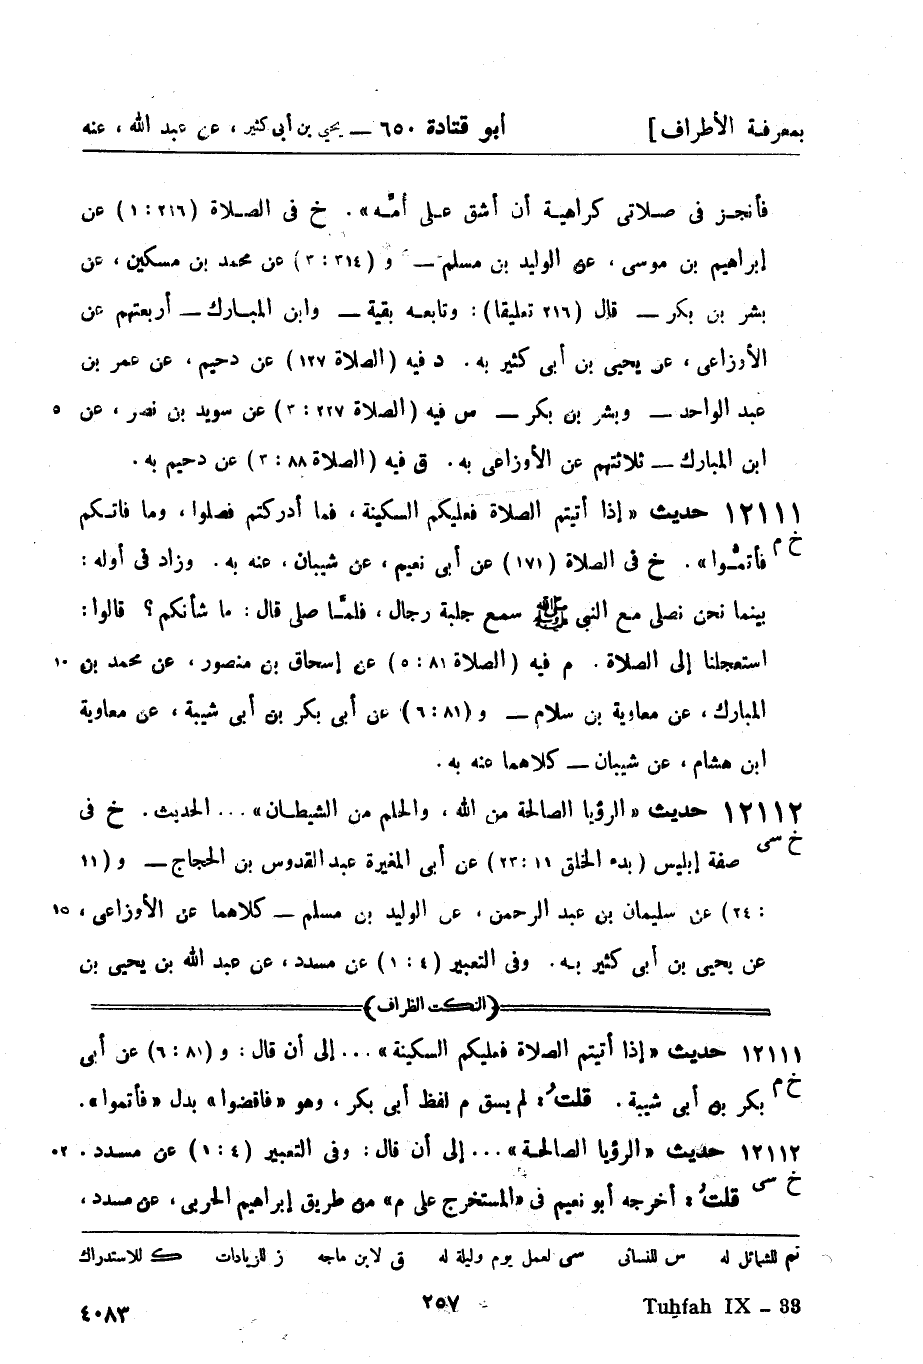 بمعرفة الأطراف] أبو قتادة ٦٥٠ — يحيى بن أبى كثير ، عن عبد الله ، عنه
فأتجوز فى صلاتى كراهية أن أشق على أمّه» . خ فى الصلاة (٢١٦ : ١) عن
إبراهيم بن موسى ، عن الوليد بن مسلم — و (٣١٤ : ٣) عن محمد بن مسكين ، عن
بشر بن بكر — قال (٢١٦ تعليقا) : وتابعه بقية — وابن المبارك — أربعتهم عن
الأوزاعى ، عن يحيى بن أبى كثير به . د فيه (الصلاة ١٢٧) عن دحيم ، عن عمر بن
عبد الواحد — وبشر بن بكر — س فيه (الصلاة ٢٢٧ : ٣) عن سويد بن نصر ، عن ٥
ابن المبارك — ثلاثتهم عن الأوزاعى به . ق فيه (الصلاة ٨٨ : ٣) عن دحيم به .
١٢١١١ حديث «إذا أتيتم الصلاة فعليكم السكينة ، فما أدركتم فصلوا ، وما فاتكم
خ م فأتمُّوا» . خ فى الصلاة (١٧١) عن أبى نعيم ، عن شيبان ، عنه به . وزاد فى أوله :
بينما نحن نصلى مع النبى ﷺ سمع جلبة رجال ، فلمَّا صلى قال : ما شأنكم ؟ قالوا :
استعجلنا إلى الصلاة . م فيه (الصلاة ٨١ : ٥) عن إسحاق بن منصور ، عن محمد بن ١٠
المبارك ، عن معاوية بن سلام — و (٨١ : ٦) عن أبى بكر بن أبى شيبة ، عن معاوية
ابن هشام ، عن شيبان — كلاهما عنه به .
١٢١١٢ حديث «الرؤيا الصالحة من الله ، والحلم من الشيطان» ... الحديث . خ فى
خ سى صفة إبليس (بدء الخلق ١١ : ٢٣) عن أبى المغيرة عبد القدوس بن الحجاج — و (١١
: ٢٤) عن سليمان بن عبد الرحمن ، عن الوليد بن مسلم — كلاهما عن الأوزاعى ، ١٥
عن يحيى بن أبى كثير به . وفى التعبير (٤ : ١) عن مسدد ، عن عبد الله بن يحيى بن
(النكت الظراف)
١٢١١١ حديث «إذا أتيتم الصلاة فعليكم السكينة» ... إلى أن قال : و (٨١ : ٦) عن أبى
خ م بكر بن أبى شيبة . قلتُ : لم يسق م لفظ أبى بكر ، وهو «فاقضوا» بدل «فأتموا» .
١٢١١٢ حديث «الرؤيا الصالحة» ... إلى أن قال : وفى التعبير (٤ : ١) عن مسدد . ٠٢
خ سى قلتُ : أخرجه أبو نعيم فى «المستخرج على م» من طريق إبراهيم الحربى ، عن مسدد ،
تم للشمائل له س للنسائى سى لعمل يوم وليلة له ق لابن ماجه ز للزيادات ك للاستدراك
٤٠٨٣ ٢٥٧ Tuḥfah IX – 33